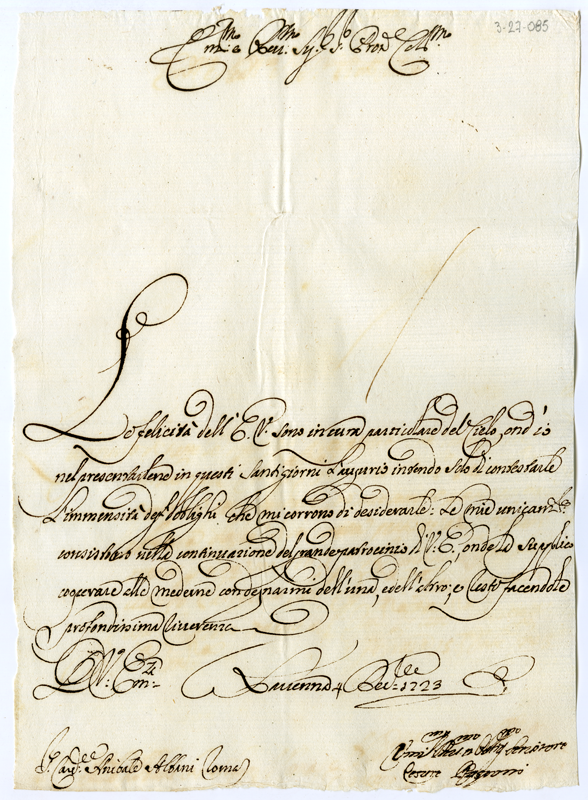 3-27-085
Em.mo e Rev.mo Sig.r Pron Col.mo
Le felicità dell' E. V. sono in cura particolare del Cielo, ond' io
nel presentarlene in questi Santi giorni l'augurio intendo solo di contestarle
l'immensità degl'obblighi, che mi corrono di desiderarle: Le mie unicam.te
consistono nella continuazione del grande patrocinio di V. E., onde la supplico
cooperare alle medeme con degnarmi dell'una, e dell'altro; e resto facendole
profondissima riverenza
Di V.ra Em.za
Ravenna 4 Dec.bre 1723
S.r Card.le Anibale Albani Roma
Umil.mo Dev.mo Oblig.mo Servitore
Cesare